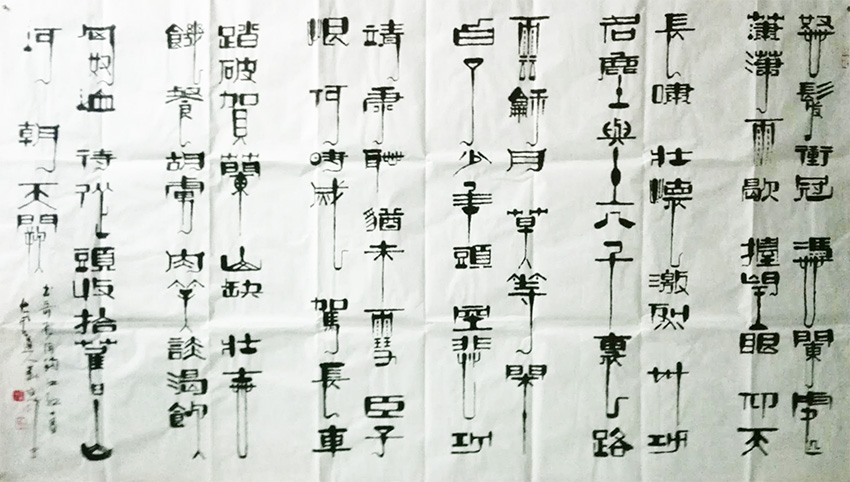 怒髮衝冠憑闌處
瀟瀟雨歇擡望眼仰天
長嘯壯懷激烈卅功
名塵與土八千裏路
雲龢月莫等閑
白了少年頭空悲切
靖康恥猶未雪臣子
恨何時滅駕長車
踏破賀蘭山缺壯志
饑餐胡虜肉笑談渴飲
匈奴血待從頭收拾舊日山
河朝天闕